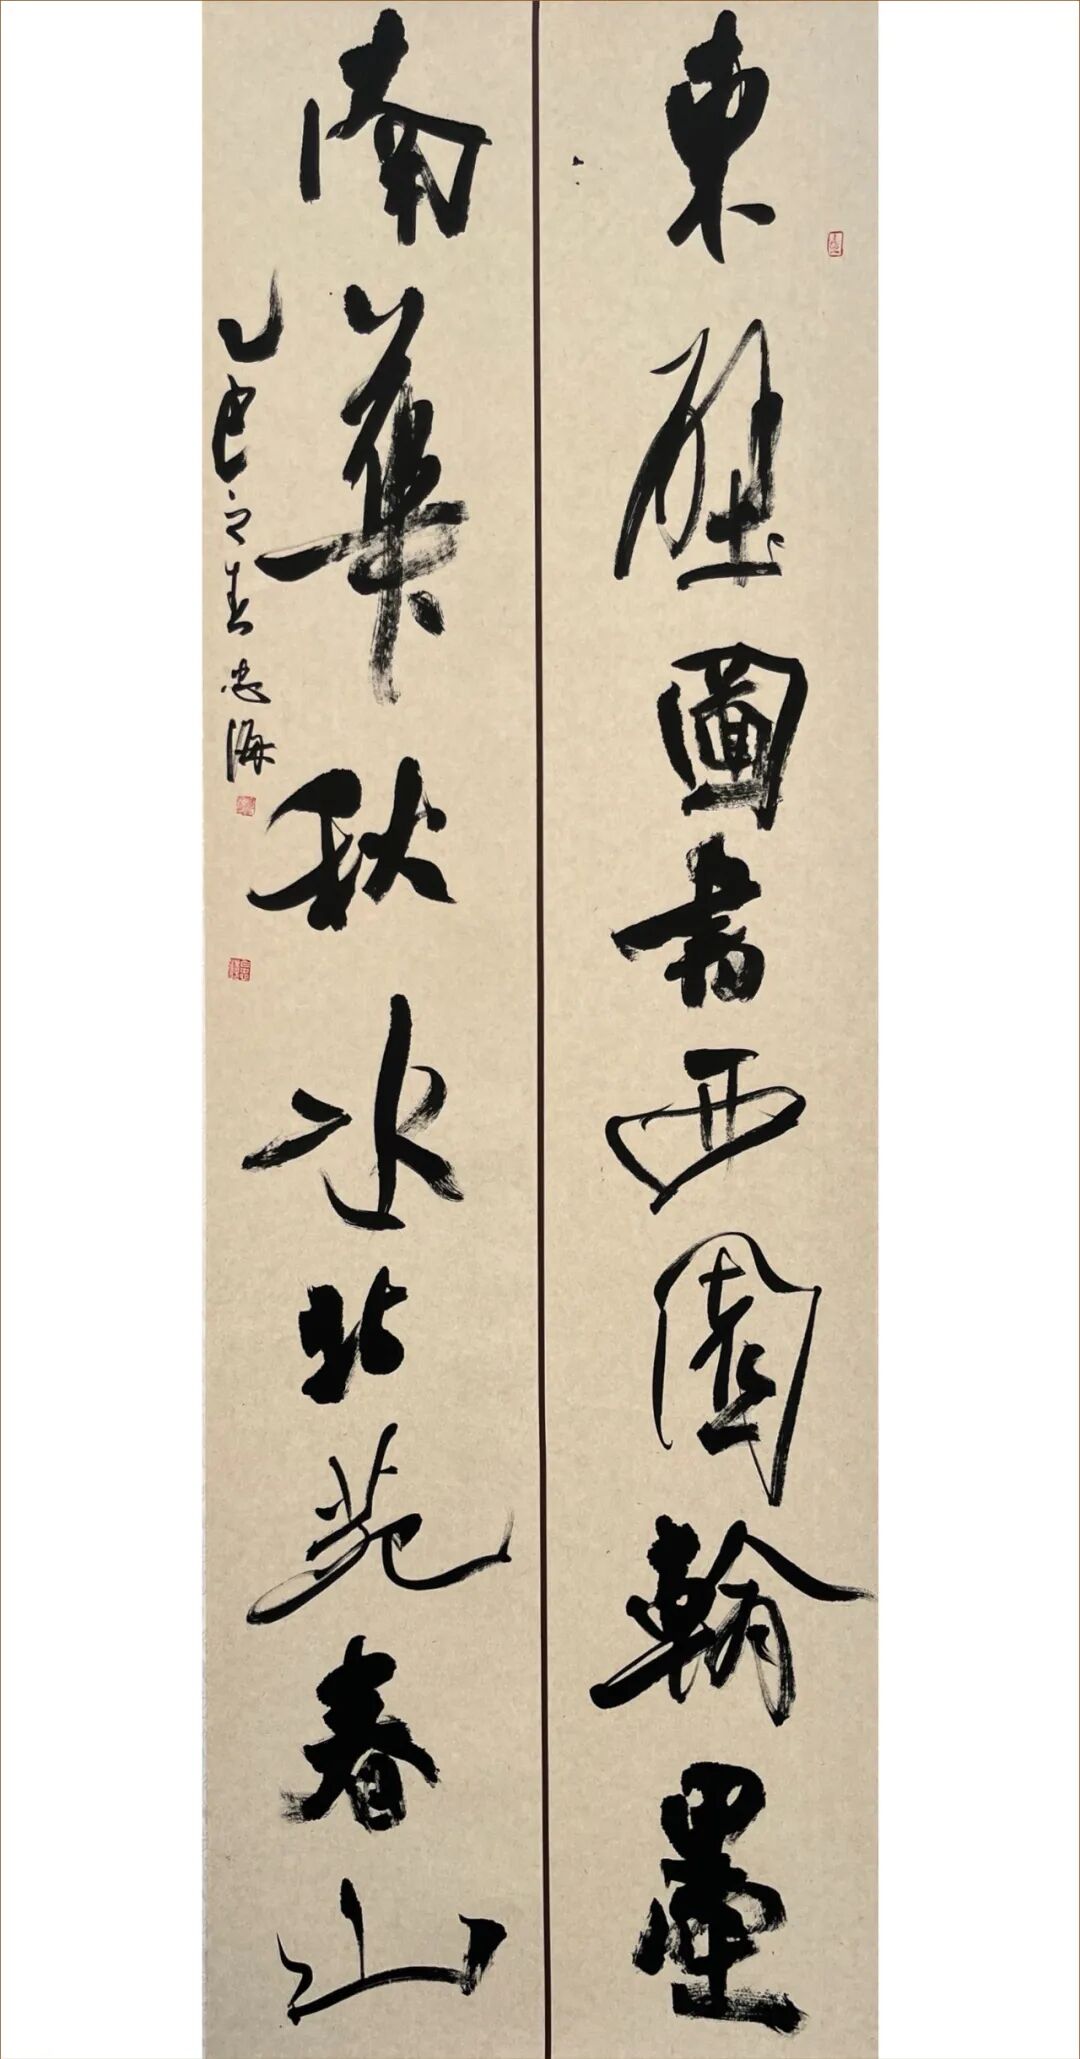 東壁圖書西園翰墨
南華秋水北苑春山
乙巳之春忠海